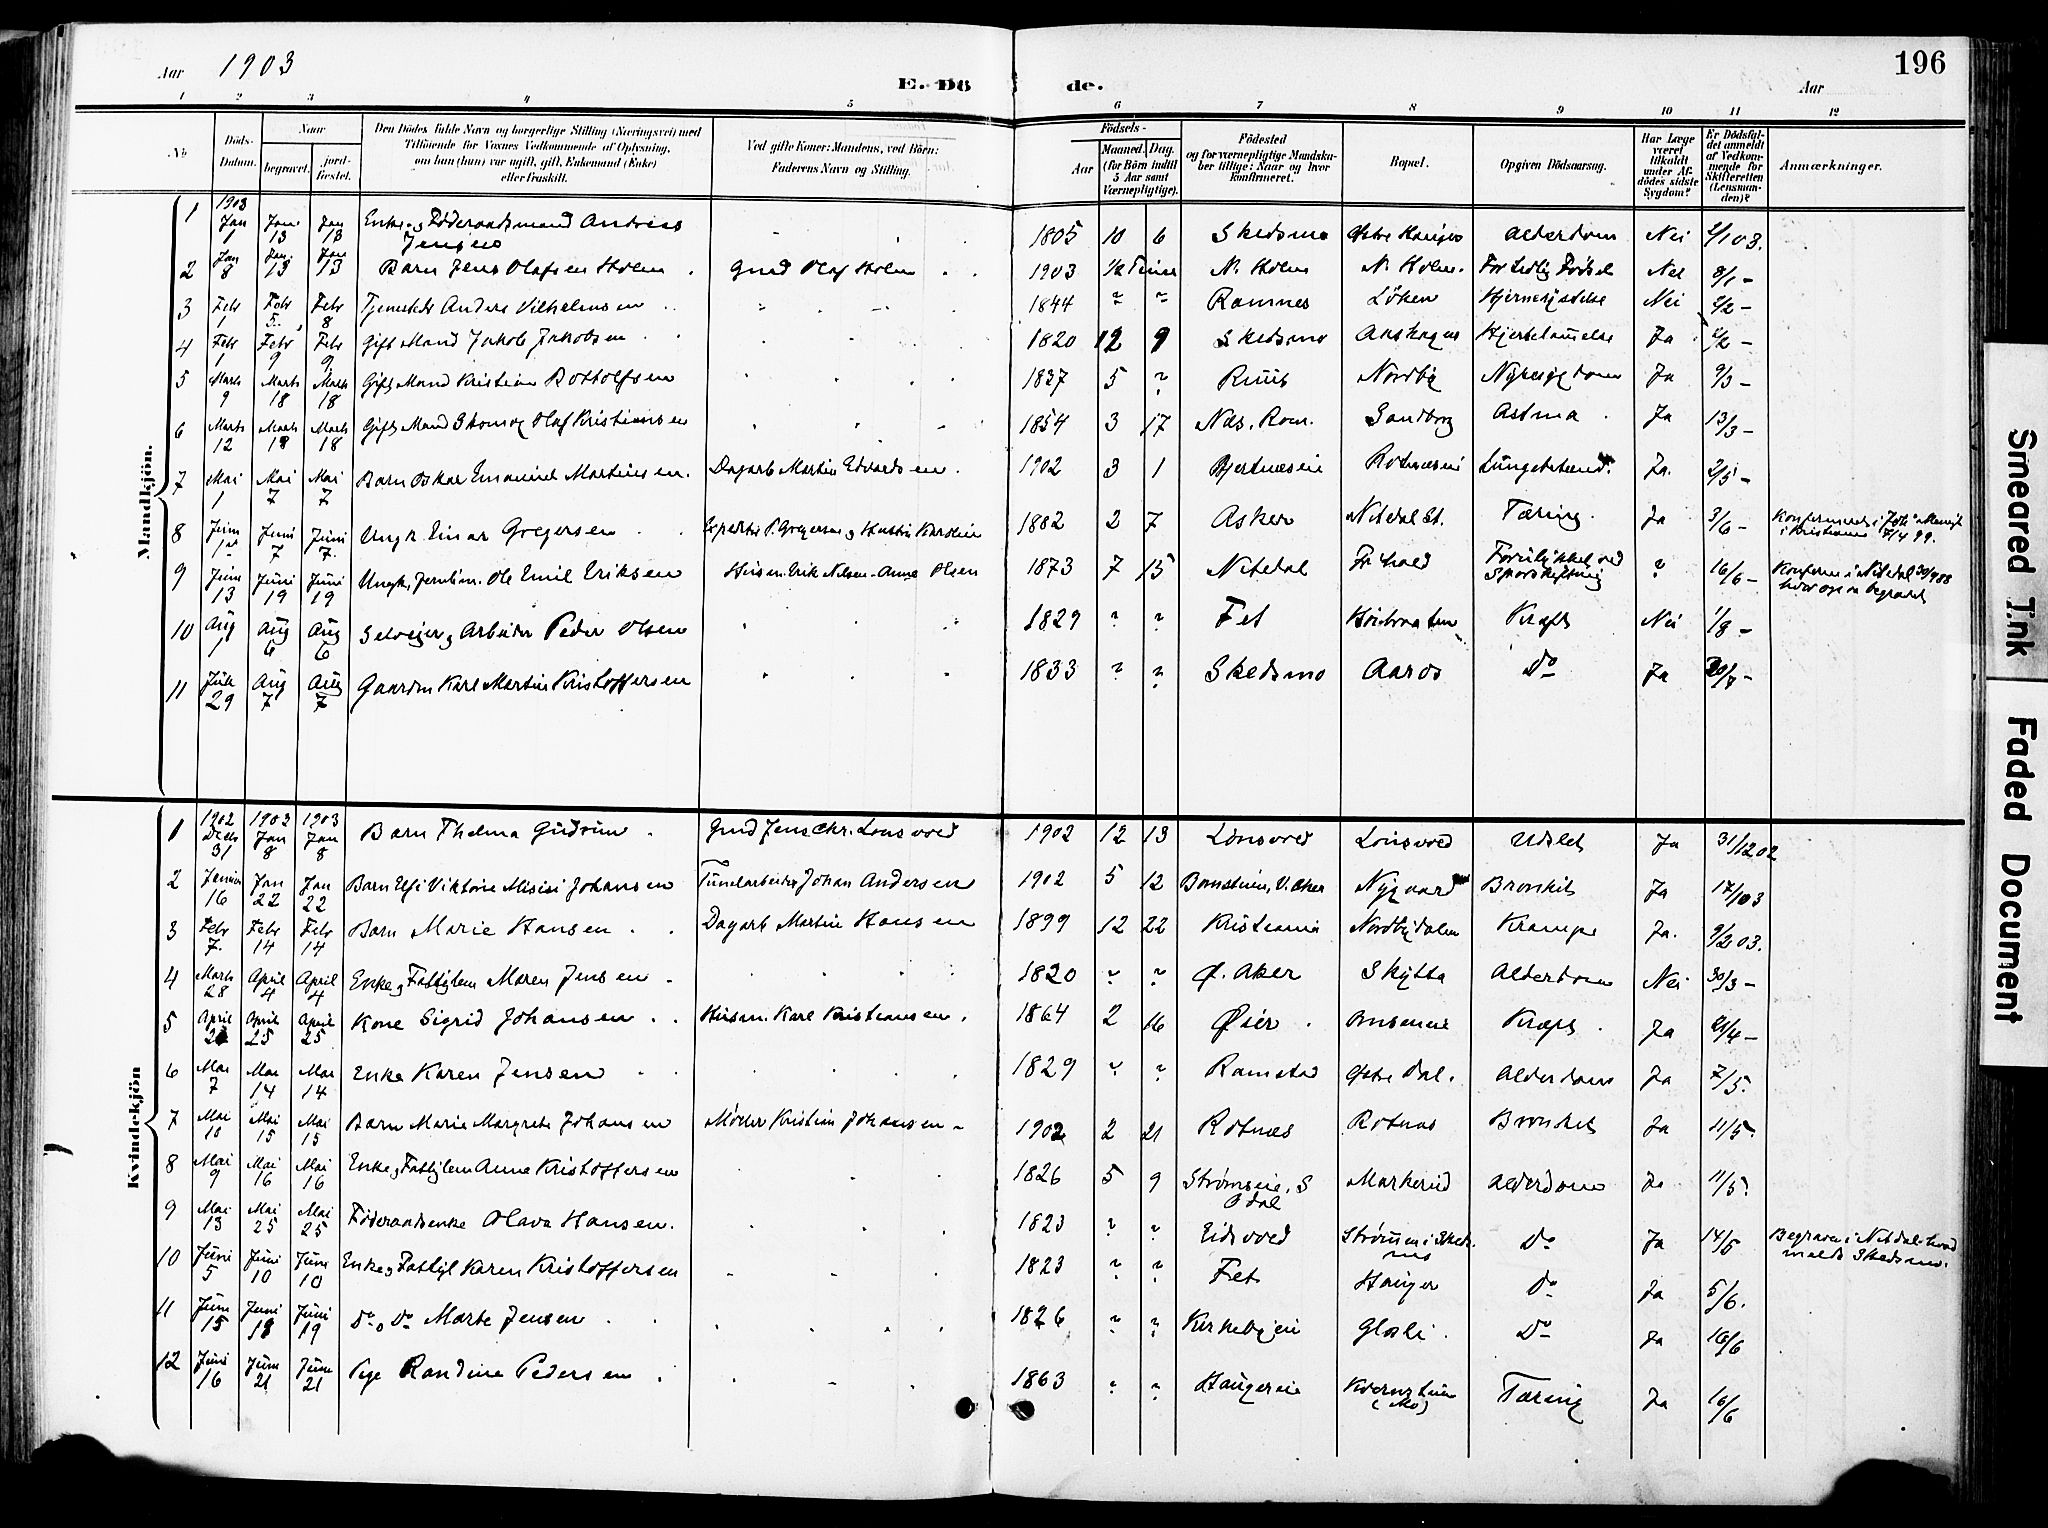 196
Aar 1903
E. Dö de.
Aar
1 2 3 4 5 6 7 8 9 10 11 12
No
Döds-Datum.
Naar
begravet.
jord-fæstet.
Den Dödes fulde Navn og borgerlige Stilling (Næringsvei) med
Tilföiende for Voxnes Vedkommende af Oplysning,
om han (hun) var ugift, gift, Enkemand (Enke)
eller fraskilt.
Ved gifte Koner: Mandens, ved Börn:
Faderens Navn og Stilling.
Födsels-
Aar
Maaned. Dag.
(for Börn indtil
5 Aar samt
Værnepligtige).
Födested
og for værnepligtige Mandska-
ber tillige: Naar og hvor
konfirmeret.
Bopæl.
Opgiven Dödsaarsag.
Har Læge
været
tilkaldt
under Af-
dödes sidste
Sygdom?
Er Dödsfal-
det anmeldt
af Vedkom-
mende for
Skifteretten
(Lensman-
den)?
Anmærkninger.
Mandkjön.
1903
1 Jan 1 Jan 13 Jan 13 Enke og Føderaadsmand Andreas Jensen 1805 10 6 Skedsmo Østre Alderdom Nei 03.
2 Jan 8 Jan 13 Jan 13 Barn Jens Olafsen Holm Gmd Olaf Holm 1903 1/2 Time N. Holm N. Holm. For tidlig Fødsel Nei 8/1 -
3 Febr 1 Febr 5 Febr 8 Anders Vilhelmsen 1844 " " Ramnes Løken Nei 2/2 -
4 Febr 1 Febr 9 Febr 9 Gift Mand Jakob Jakobsen 1820 12 9 Skedsmo Hjertelammelse Ja 2/2 -
5 Marts 9 Marts 18 Marts 18 Gift Mand Kristian 1827 5 " Nordby Nyresygdom Ja 9/3 -
6 Marts 12 Marts 18 Marts 18 Gift Mand Skomag Olaf Kristiansen 1854 3 17 Nes. Rom. Sandborg Astma Ja 13/3 -
7 Mai 1 Mai 7 Mai 7 Barn Oskar Emanuel Martinsen. Dagarb Martin Edvardsen. 1902 3 1 Ja. 2/5 -
8 Juni 1 Juni 7 Juni 7 Ungk. Einar Gregersen 1882 2 7 Asker Nitedal St. Tæring. Ja 3/6 -
9 Juni 13 Juni 19 Juni 19 Ungk. Ole Emil Eriksen Husm. Erik Nilsen - Anne Olsen 1873 7 15 Nitedal ? 16/6 - Konfirm i Nitedal
10 Aug 1 Aug 6 Aug 6 Selveier og Arbeider Peder Olsen 1829 " " Fet Kræft Nei 1/8 -
11 Juli 29 Aug 7 Aug 7 Gaardm Karl Martin Kristoffersen 1833 " " Skedsmo Aaros Do Ja 30/7 -
Kvindekjön
1 1902 Decb 31 1903 Jan 8 1903 Jan 8 Barn Thelma Gudrun Gmd Jens Chr. 1902 12 13 Udslet Ja 31/12 02
2 Januar 16 Jan 22 Jan 22 Barn Johansen Tunelarbeider Johan Andersen 1902 5 12 V. Aker Nygaard Bronkit Ja 17/1 03
3 Febr 7 Febr 14 Febr 14 Barn Marie Hansen Dagarb Martin Hansen 1899 12 22 Kristiania Nordbydalen Krampe Ja. 9/2 03.
4 Marts 28 April 4 April 4 Enke og Fattiglem Maren Jensen 1820 " " Ø. Aker Skytta Alderdom Nei 30/3 -
5 April 21 April 25 April 25 Kone Sigrid Johansen Husm. Karl Kristiansen. 1864 2 16 Øier Kræft Ja
6 Mai 7 Mai 14 Mai 14 Enke Karen Jensen 1829 " " Ramstad Østre Dal. Alderdom Ja 7/5.
7 Mai 10 Mai 15 Mai 15 Barn Marie Margrete Johansen Moder Kristine Johansen 1902 2 21 Rotnæs Rotnæs Bronkit Ja 11/5.
8 Mai 9 Mai 16 Mai 16 Enke og Fattiglem Anne Kristoffersen 1826 5 9 Strømseie, S Odal Markerud Alderdom Ja 11/5.
9 Mai 13 Mai 25 Mai 25 Føderaadsenke Olava Hansen. 1823 " " Eidsvold Strømmen i Skedsmo Do Ja 14/5 Begraven i Nitedal
10 Juni 5 Juni 10 Juni 10 Enke og Fattigl Karen Kristoffersen 1823 " " Fet Hauger Do Ja 5/6.
11 Juni 15 Juni 18 Juni 19 Do, Do Marte Jensen 1826 " " Kirkebyeie Glosli Do Ja 16/6
12 Juni 16 Juni 21 Juni 21 Pige Randine Pedersen 1863 " " Haugereie (Mo) Tæring Ja 16/6
Smeared Ink
Faded Document